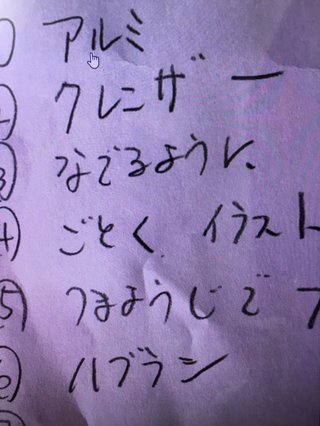 アルミ
クレンザー
③ なでるように
④ ごとく イラスト
⑤ つまようじで
⑥ ハブラシ